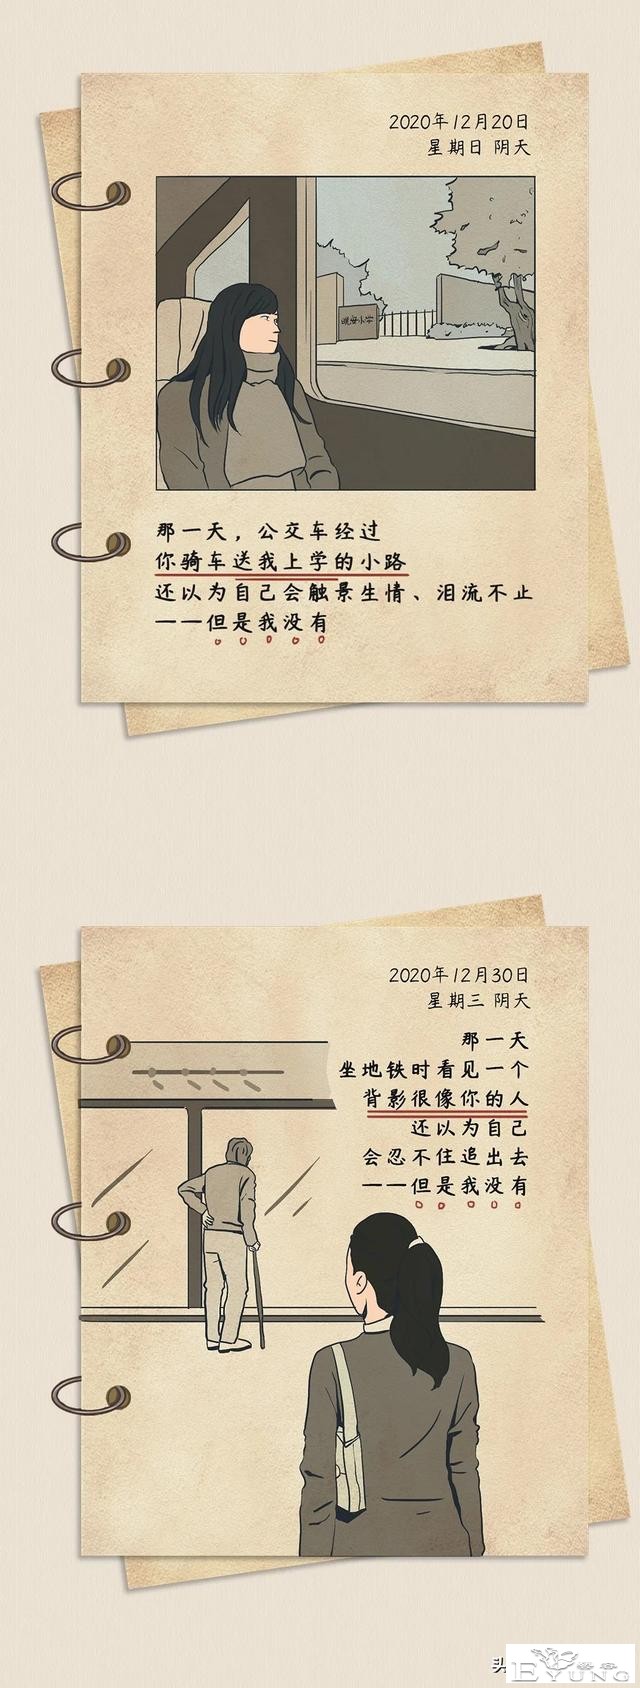 2020年12月20日
星期日 阴天
晚安小学
那一天，公交车经过
你骑车送我上学的小路
还以为自己会触景生情、泪流不止
——但是我没有
2020年12月30日
星期三 阴天
那一天
坐地铁时看见一个
背影很像你的人
还以为自己
会忍不住追出去
——但是我没有
头
EYUNG